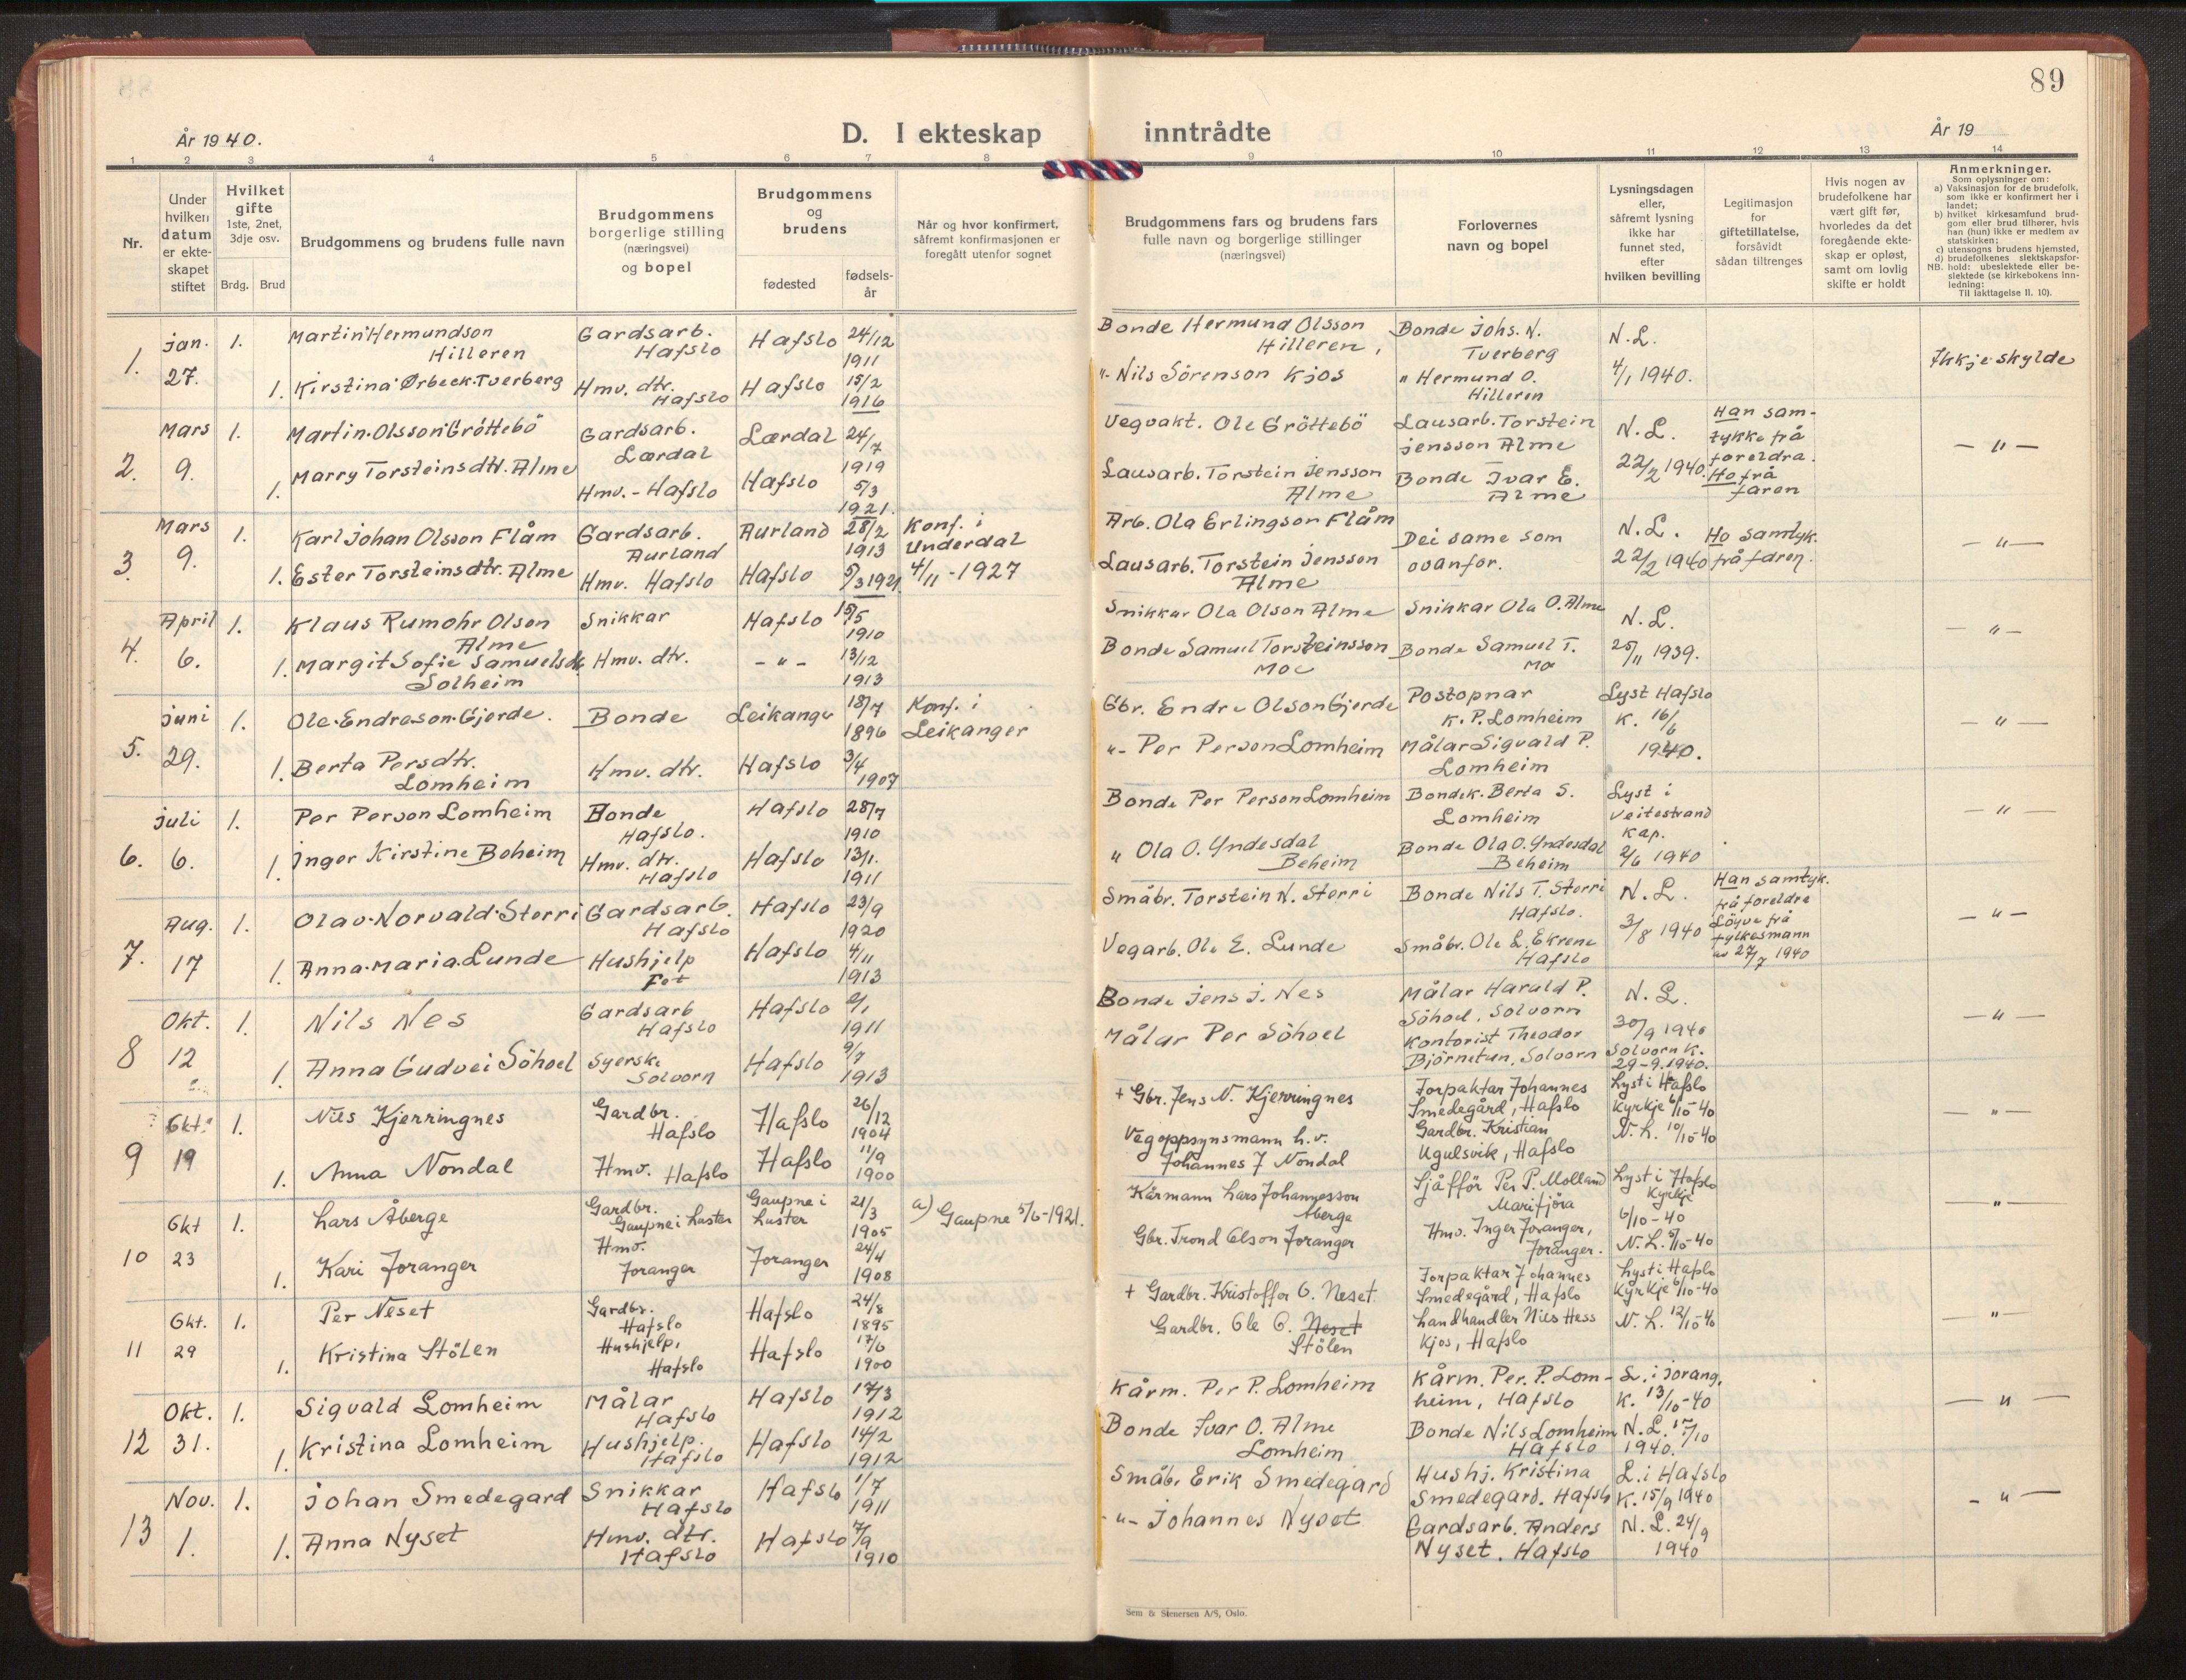 89
År 1940.
D. I ekteskap inntrådte
År 19
1 2 3 4 5 6 7 8 9 10 11 12 13 14
Nr.
Under hvilken datum er ekteskapet stiftet
Hvilket gifte 1ste, 2net, 3dje osv.
Brdg. Brud
Brudgommens og brudens fulle navn
Brudgommens borgerlige stilling (næringsvei) og bopel
Brudgommens og brudens
fødested
fødselsår
Når og hvor konfirmert, såfremt konfirmasjonen er foregått utenfor sognet
Brudgommens fars og brudens fars fulle navn og borgerlige stillinger (næringsvei)
Forlovernes navn og bopel
Lysningsdagen eller, såfremt lysning ikke har funnet sted, efter hvilken bevilling
Legitimasjon for giftetillatelse, forsåvidt sådan tiltrenges
Hvis nogen av brudefolkene har vært gift før, hvorledes da det foregående ekteskap er opløst, samt om lovlig skifte er holdt
Anmerkninger.
Som oplysninger om:
a) Vaksinasjon for de brudefolk, som ikke er konfirmert her i landet;
b) hvilket kirkesamfund brudgom eller brud tilhører, hvis han (hun) ikke er medlem av statskirken;
c) utensogns brudens hjemsted,
d) brudefolkenes slektskapsforhold: ubeslektede eller beslektede (se kirkebokens innledning:
NB.
Til Iakttagelse II. 10).
1. Jan. 27. 1. Martin Hermundson Hilleren Gardsarb. Hafslo Hafslo 24/12 1911 Bonde Hermund Olsson Hilleren, Bonde Johs. N. Tverberg N.L. 4/1 1940. Ikkje skylde
1. Kirstina Ørbeck Tverberg Hmv. dtr. Hafslo Hafslo 15/2 1916 "- Nils Sörenson Kjos " Hermund O. Hilleren
2. Mars 9. 1. Martin Olsson Gröttebö Gardsarb. Lærdal Lærdal 24/7 1919 Vegvakt. Ole Gröttebö Lausarb. Torstein Jensson Alme N.L. 22/2 1940. Han samtykke frå foreldra. Ho frå faren — " —
1. Marry Torsteinsdtr. Alme Hmv. - Hafslo Hafslo 5/3 1921. Lausarb. Torstein Jensson Alme Bonde Ivar E. Alme
3. Mars 9. 1. Karl Johan Olsson Flåm Gardsarb. Aurland Aurland 28/2 1913 Konf. i Underdal 4/11 - 1927 Arb. Ola Erlingson Flåm Dei same som ovanfor. N.L. 22/2 1940 Ho samtyk. frå faren. — " —
1. Ester Torsteinsdtr. Alme Hmv. Hafslo Hafslo 5/3 1921. Lausarb. Torstein Jensson Alme
4. April 6. 1. Klaus Rumohr Olson Alme Snikkar Hafslo 15/5 1910 Snikkar Ola Olson Alme Snikkar Ola O. Alme N.L. 25/11 1939. — " —
1. Margit Sofie Samuelsdtr. Solheim Hmv. dtr. — " — 13/12 1913 Bonde Samuel Torsteinsson Moe Bonde Samuel T. Mo
5. Juni 29. 1. Ole Endreson Gjerde. Bonde Leikanger 18/7 1896 Konf. i Leikanger Gbr. Endre Olson Gjerde Postopnar K. P. Lomheim Lyst Hafslo K. 16/6 1940. — " —
1. Berta Persdtr. Lomheim Hmv. dtr. Hafslo 3/4 1907 "- Per Person Lomheim Målar Sigvald P. Lomheim
6. Juli 6. 1. Per Person Lomheim Bonde Hafslo. Hafslo 28/7 1910 Bonde Per Person Lomheim Bondek. Berta S. Lomheim Lyst i Veitestrand Kap. 2/6 1940 — " —
1. Inger Kirstine Beheim Hmv. dtr. Hafslo Hafslo 13/1. 1911 " Ola O. Yndesdal Beheim Bonde Ola O. Yndesdal Beheim
7. Aug. 17 1. Olav Norvald Sterri Gardsarb. Hafslo Hafslo 23/9 1920 Småbr. Torstein N. Sterri Bonde Nils T. Sterri Hafslo. N.L. 3/8 1940 Han samtyk. frå foreldre Löyve frå fylkesmann av 27/7 1940 — " —
1. Anna Maria Lunde Hushjelp Fet Hafslo 4/11 1913 Vegarb. Ole E. Lunde Småbr. Ole L. Ekrene Hafslo
8 Okt. 12 1. Nils Nes Gardsarb Hafslo Hafslo 1911 Bonde Jens J. Nes Målar Harald P. Söhoel, Solvorn N.L. 30/9 1940 Solvorn K. 29-9.1940. — " —
1. Anna Gudvei Söhoel Syerske Solvorn Hafslo 9/7 1913 Målar Per Söhoel Kontorist Theodor Björnetun, Solvorn
9 Okt. 19 1. Nils Kjerringnes Gardbr. Hafslo Hafslo 26/12 1904 + Gbr. Jens N. Kjerringnes Forpaktar Johannes Smedegård, Hafslo Lyst i Hafslo Kyrkje 6/10-40 N.L. 10/10-40 — " —
1. Anna Nondal Hmv. Hafslo Hafslo 11/9 1900 Vegoppsynsmann h.v. Johannes J Nondal Gardbr. Kristian Ugulsvik, Hafslo
10 Okt 23 1. Lars Åberge Gardbr. Gaupne i Luster Gaupne i Luster 21/3 1905 a) Gaupne 5/6-1921. Kårmann Lars Johannesson Åberge Sjåfför Per P. Molland Marifjöra Lyst i Hafslo Kyrkje 6/10-40 N.L. 5/10-40 — " —
1. Kari Joranger Hmv. Joranger Joranger 24/4 1908 Gbr. Trond Olson Joranger Hmv. Inger Joranger, Joranger.
11 Okt. 29 1. Per Neset Gardbr. Hafslo Hafslo 24/8 1895 + Gardbr. Kristoffer O. Neset. Forpaktar Johannes Smedegård, Hafslo Lyst i Hafslo Kyrkje 6/10-40 N.L. 12/10-40 — " —
1. Kristina Stölen Hushjelp, Hafslo Hafslo 17/6 1900 Gardbr. Ole O. Neset Stölen Landhandler Nils Hess Kjos, Hafslo
12 Okt. 31. 1. Sigvald Lomheim Målar Hafslo Hafslo 17/3 1912 Kårm. Per P. Lomheim Kårm. Per. P. Lomheim, Hafslo L. i Jorang. K. 13/10-40 N.L. 17/10 1940. — " —
1. Kristina Lomheim Hushjelp. Hafslo Hafslo 14/2 1912 Bonde Ivar O. Alme Lomheim Bonde Nils Lomheim Hafslo
13 Nov. 1. 1. Johan Smedegard Snikkar Hafslo Hafslo 1/7 1911 Småbr. Erik Smedegard Hushj. Kristina Smedegard. Hafslo L. i Hafslo K. 15/9 1940 N.L. 24/9 1940 — " —
1. Anna Nyset Hmv. dtr. Hafslo Hafslo 7/9 1910 - " - Johannes Nyset Gardsarb. Anders Nyset. Hafslo
Sem & Stenersen A/S, Oslo.